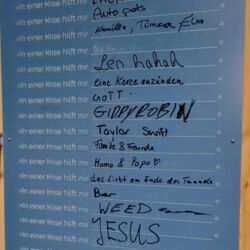 »In einer Krise hilft mir
»In einer Krise hilft mir Auto «
»In einer Krise hilft mir «
»In einer Krise hilft mir «
»In einer Krise hilft mir Len hahah «
»In einer Krise hilft mir eine Kerze anzünden «
»In einer Krise hilft mir GOTT «
»In einer Krise hilft mir GIDDYROBIN «
»In einer Krise hilft mir Taylor Swift «
»In einer Krise hilft mir Familie & Freunde «
»In einer Krise hilft mir Mama & Papa ♡ «
»In einer Krise hilft mir das Licht am Ende des Tunnels «
»In einer Krise hilft mir Bier «
»In einer Krise hilft mir WEED «
»In einer Krise hilft mir JESUS «